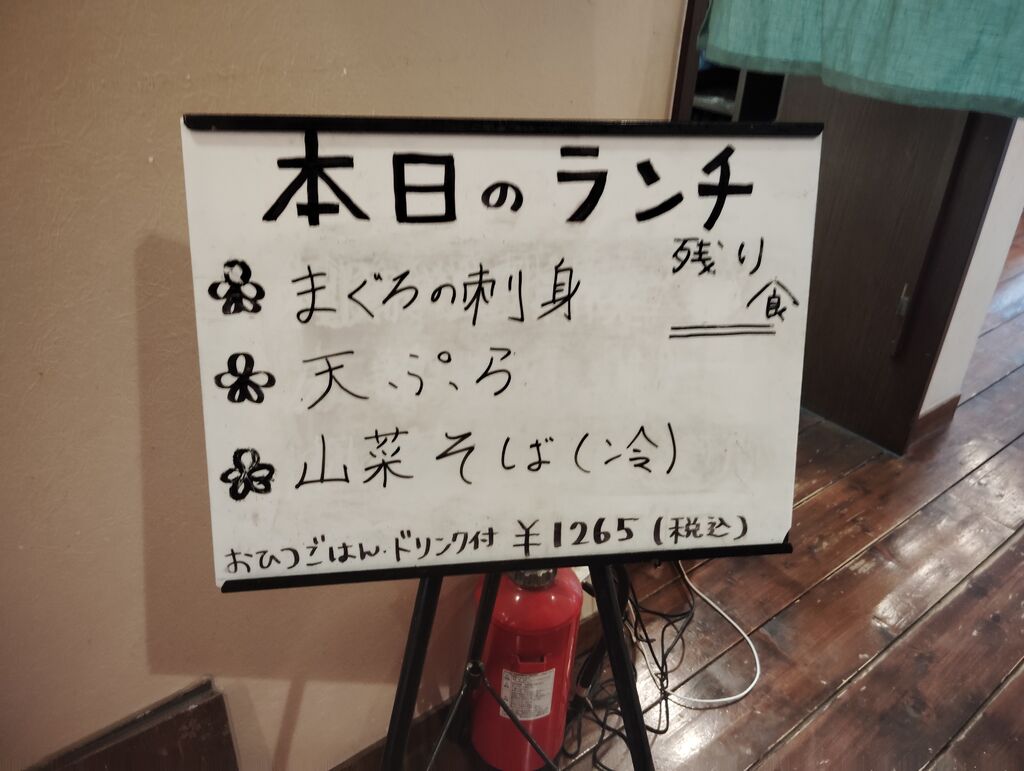 本日のランチ
残り
食
まぐろの刺身
天ぷら
山菜そば(冷)
おひつごはん・ドリンク付 ¥1265(税込)